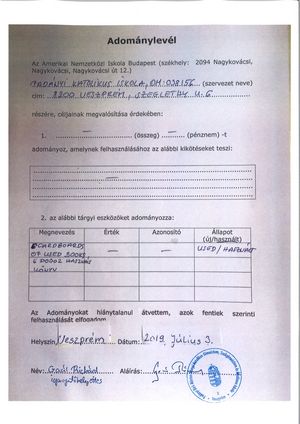 Adománylevél
Az Amerikai Nemzetközi Iskola Budapest (székhely: 2094 Nagykovácsi,
Nagykovácsi, Nagykovácsi út 12.)
PADÁNYI KATOLIKUS ISKOLA, OM-038156 (szervezet neve)
cím: 8200 VESZPRÉM, SZEGLETHY U. 6
részére, céljainak megvalósítása érdekében:
1. — (összeg) — (pénznem) -t
adományoz, amelynek felhasználásához az alábbi kikötéseket teszi:
—
2. az alábbi tárgyi eszközöket adományozza:
Megnevezés Érték Azonosító Állapot
(új/használt)
CARDBOARDS — — USED / HASZNÁLT
OF USED BOOKS
6 DOBOZ HASZNÁLT
KÖNYV
Az Adományokat hiánytalanul átvettem, azok fentiek szerinti
felhasználását elfogadom.
Helyszín: Veszprém Dátum: 2019. Július 3.
Név: Gaál Richárd Aláírás:
igazgatóhelyettes